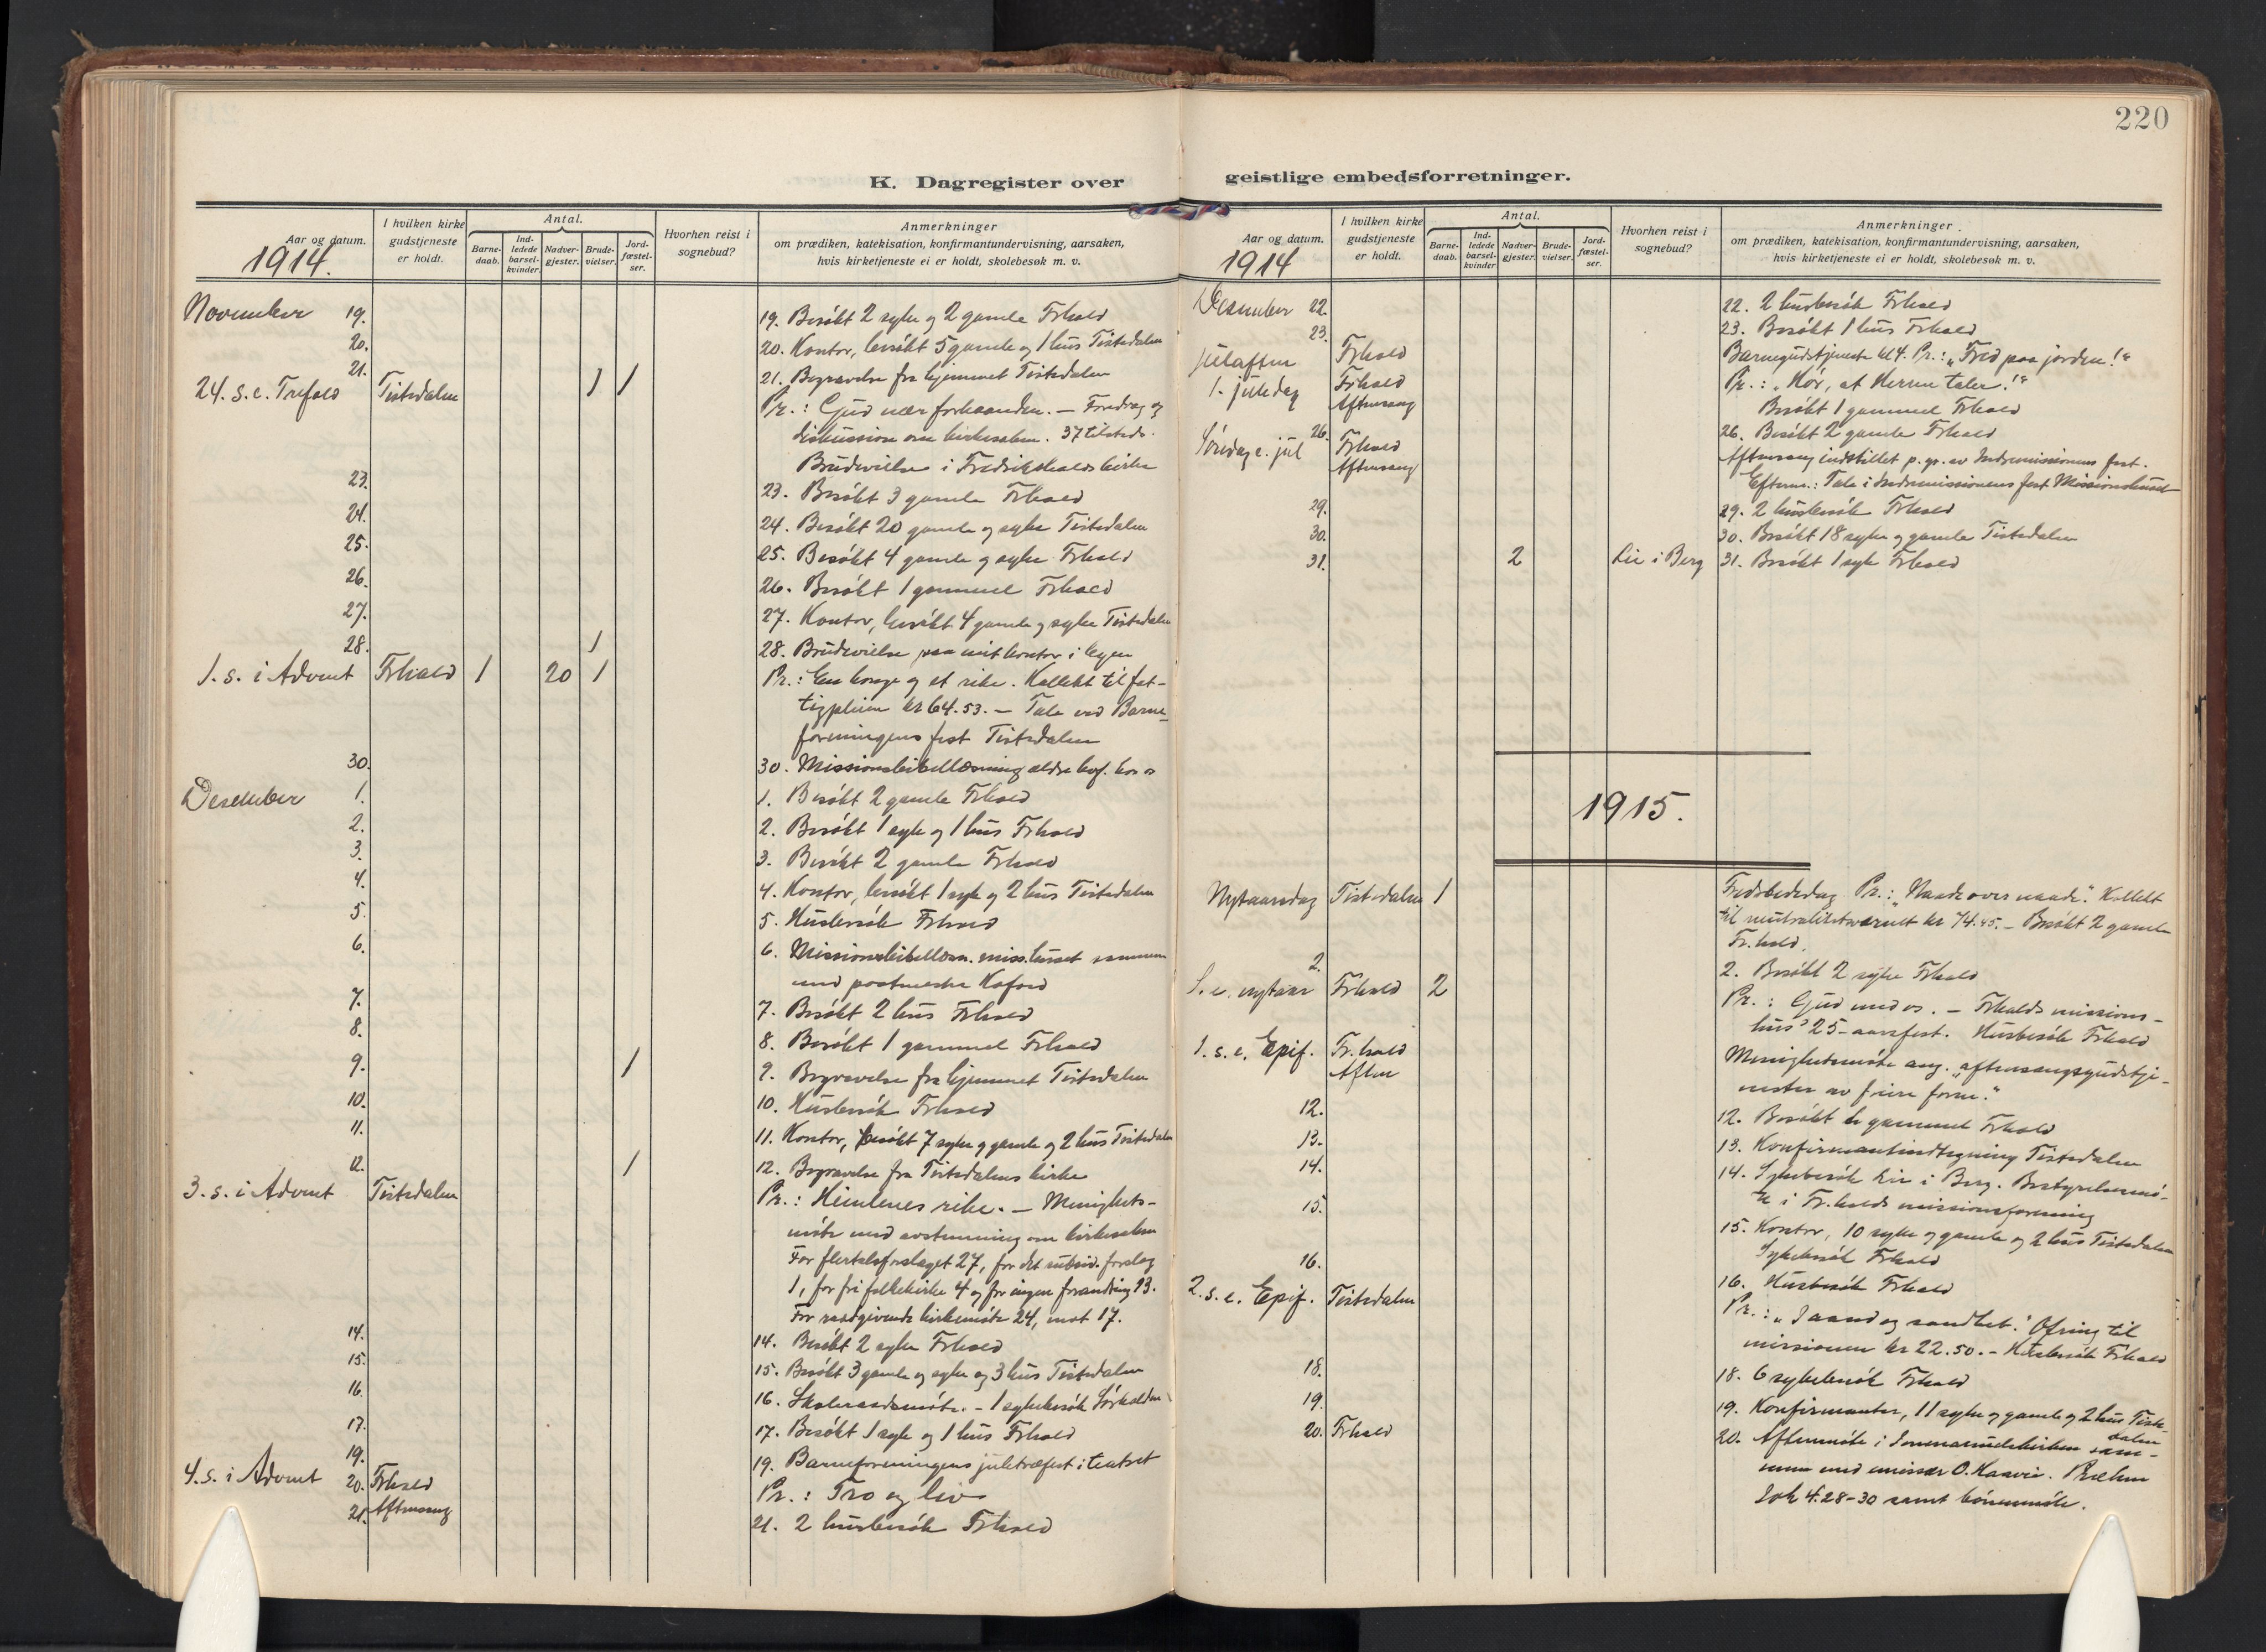 220
K. Dagregister over
geistlige embedsforretninger.
Aar og datum.
1914.
I hvilken kirke gudstjeneste er holdt.
Antal.
Barne-daab.
Ind-ledede barsel-kvinder.
Nadver-gjester.
Brude-vielser.
Jord-fæstel-ser.
Hvorhen reist i sognebud?
Anmerkninger
om prædiken, katekisation, konfirmantundervisning, aarsaken,
hvis kirketjeneste ei er holdt, skolebesøk m. v.
November 19. 19. Besøkt 2 syke og 2 gamle Frhald
20. 20. Kontor, besøkt 5 gamle og 1 hus Tistedalen
21. 1 21. Begravelse fra hjemmet Tistedalen
24. s. e. Trefold Tistedalen 1 Pr.: Gud nær forhaanden. — Foredrag og
diskussion om kirkesaken. 37 tilstede.
Brudevielse i Fredrikshalds kirke
23. 23. Besøkt 3 gamle Frhald
24. 24. Besøkt 20 gamle og syke Tistedalen
25. 25. Besøkt 4 gamle og syke Frhald
26. 26. Besøkt 1 gammel Frhald
27. 27. Kontor, besøkt 4 gamle og syke Tistedalen
28. 1 28. Brudevielse paa mit kontor i byen
1. s. i Advent Frhald 1 20 1 Pr.: En konge og et rike. Kollekt til fat-
tigpleien kr 64.53. — Tale ved Barne-
foreningens fest Tistedalen
30. 30. Missionsbibellæsning ældre kof. hos os
Desember 1. 1. Besøkt 2 gamle Frhald
2. 2. Besøkt 1 syk og 1 hus Frhald
3. 3. Besøkt 2 gamle Frhald
4. 4. Kontor, besøkt 1 syk og 2 hus Tistedalen
5. 5. Husbesøk Frhald
6. 6. Missionsbibellæsn. miss.huset sammen
med postmester Kofoed
7. 7. Besøkt 2 hus Frhald
8. 8. Besøkt 1 gammel Frhald
9. 1 9. Begravelse fra hjemmet Tistedalen
10. 10. Husbesøk Frhald
11. 11. Kontor, besøkt 7 syke og gamle og 2 hus Tistedalen
12. 1 12. Begravelse fra Tistedalens kirke
3. s. i Advent Tistedalen Pr.: Himlenes rike. — Menighets-
møte med avstemning om kirkesaken
For flertalsforslaget 27, for det subsid. forslag
1, for fri folkekirke 4 og for ingen forandring 13.
For raadgivende kirkemøte 24, mot 17.
14. 14. Besøkt 2 syke Frhald
15. 15. Besøkt 3 gamle og syke og 3 hus Tistedalen
16. 16. Skoleraadsmøte. - 1 sykebesøk Sørhalden
17. 17. Besøkt 1 syk og 1 hus Frhald
19. 19. Barneforeningens juletræfest i teatret
4. s. i Advent 20. Frhald Pr.: Tro og liv
Aftensang
21. 21. 2 husbesøk Frhald
Aar og datum.
1914
I hvilken kirke gudstjeneste er holdt.
Antal.
Barne-daab.
Ind-ledede barsel-kvinder
Nadver-gjester.
Brude-vielser.
Jord-fæstel-ser.
Hvorhen reist i sognebud?
Anmerkninger
om prædiken, katekisation, konfirmantundervisning, aarsaken,
hvis kirketjeneste ei er holdt, skolebesøk m. v.
Desember 22. 22. 2 husbesøk Frhald
23. 23. Besøkt 1 hus Frhald
Julaften Frhald Barnegudstjeneste kl 4. Pr.: „Fred paa jorden!“
1. juledag Frhald Pr.: „Hør, at Herren taler!“
Aftensang Besøkt 1 gammel Frhald
26. 26. Besøkt 2 gamle Frhald
Søndag e. jul Frhald Aftensang indstillet p. gr. av Indremissionens fest.
Aftensang Efterm.: Tale i Indremissionens fest Missionshuset
29. 29. 2 husbesøk Frhald
30. 30. Besøkt 18 syke og gamle Tistedalen
31. 2 Lie i Berg 31. Besøkt 1 syk Frhald
1915.
Nytaarsdag Tistedalen 1 Fredsbededag Pr.: „Naade over naade“. Kollekt
til neutralitetsvernet kr 74.45. — Besøkt 2 gamle
Fr.hald.
2. 2. Besøkt 2 syke Frhald
S. e. nytaar Frhald 2 Pr.: Gud med os. — Frhalds missions-
hus' 25-aarsfest. Husbesøk Frhald
1. s. e. Epif. Fr.hald Menighetsmøte ang. „aftensangsgudstje-
Aften nester av friere form.“
12. 12. Besøkt en gammel Frhald
13. 13. Konfirmantindtegning Tistedalen
14. 14. Sykebesøk Lie i Berg. Bestyrelsesmø-
te i Fr.halds missionsforening
15. 15. Kontor, 10 syke og gamle og 2 hus Tistedalen
Sykebesøk Frhald
16. 16. Husbesøk Frhald
2. s. e. Epif. Tistedalen Pr.: „I aand og sandhet.“ Ofring til
missionen kr 22.50. — Husbesøk Frhald
18. 18. 6 sykebesøk Frhald
19. 19. Konfirmanter, 11 syke og gamle og 2 hus Tiste-
dalen
20. Frhald 20. Aftenmøte i Immanuelskirken sam-
men med emissær O. Kaavin.
Joh 4.28-30 samt bønnemøte.